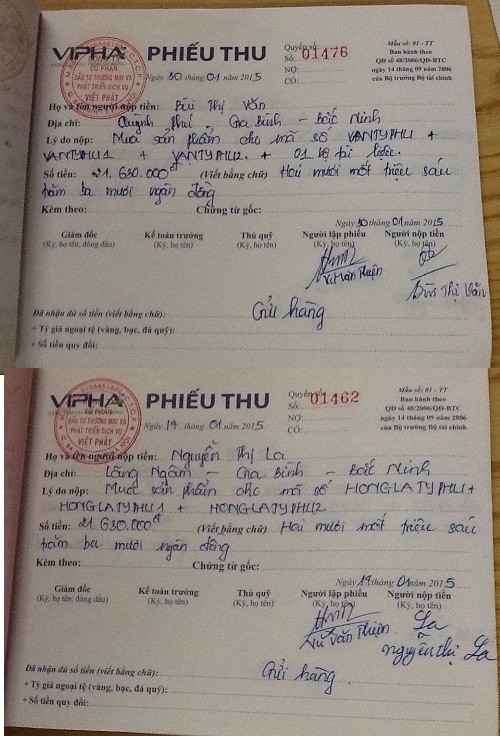 VIPHA PHIẾU THU
CỔ PHẦN
ĐẦU TƯ THƯƠNG MẠI VÀ
PHÁT TRIỂN DỊCH VỤ
VIỆT PHÁT
Quyển số:
Số: 01476
NỢ:
CÓ:
Mẫu số: 01 - TT
Ban hành theo
QĐ số 48/2006/QĐ-BTC
ngày 14 tháng 09 năm 2006
của Bộ trưởng Bộ tài chính
Ngày 30 tháng 01 năm 2015
Họ và tên người nộp tiền: Bùi Thị Vân
Địa chỉ: Quỳnh Phú - Gia Bình - Bắc Ninh
Lý do nộp: Mua sản phẩm cho mã số VANTYPHU +
VANTYPHU1 + VANTYPHU2 + 01 bộ tài liệu.
Số tiền: 21.630.000đ (Viết bằng chữ) Hai mươi mốt triệu sáu
trăm ba mươi ngàn đồng
Kèm theo: Chứng từ gốc:
Ngày 30 tháng 01 năm 2015
Giám đốc Kế toán trưởng Thủ quỹ Người lập phiếu Người nộp tiền
(Ký, họ tên, đóng dấu) (Ký, họ tên) (Ký, họ tên) (Ký, họ tên) (Ký, họ tên)
Bùi Thị Vân
Gửi hàng
Đã nhận đủ số tiền (viết bằng chữ):
+ Tỷ giá ngoại tệ (vàng, bạc, đá quý):
+ Số tiền quy đổi:
VIPHA PHIẾU THU
CỔ PHẦN
ĐẦU TƯ THƯƠNG MẠI VÀ
PHÁT TRIỂN DỊCH VỤ
VIỆT PHÁT
Quyển số:
Số: 01462
NỢ:
CÓ:
Mẫu số: 01 - TT
Ban hành theo
QĐ số 48/2006/QĐ-BTC
ngày 14 tháng 09 năm 2006
của Bộ trưởng Bộ tài chính
Ngày 19 tháng 01 năm 2015
Họ và tên người nộp tiền: Nguyễn Thị La
Địa chỉ: Lãng Ngâm - Gia Bình - Bắc Ninh
Lý do nộp: Mua sản phẩm cho mã số HONGLATYPHU +
HONGLATYPHU1 + HONGLATYPHU2
Số tiền: 21.630.000đ (Viết bằng chữ) Hai mươi mốt triệu sáu
trăm ba mươi ngàn đồng
Kèm theo: Chứng từ gốc:
Ngày 19 tháng 01 năm 2015
Giám đốc Kế toán trưởng Thủ quỹ Người lập phiếu Người nộp tiền
(Ký, họ tên, đóng dấu) (Ký, họ tên) (Ký, họ tên) (Ký, họ tên) (Ký, họ tên)
La
nguyễn thị La
Gửi hàng
Đã nhận đủ số tiền (viết bằng chữ):
+ Tỷ giá ngoại tệ (vàng, bạc, đá quý):
+ Số tiền quy đổi: